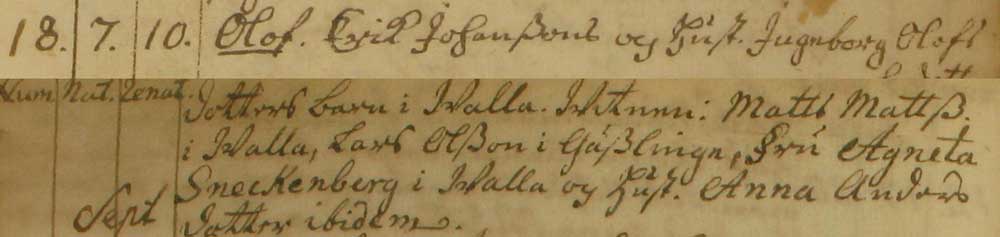 18. 7. 10. Olof. Erik Johanßons og Hust. Ingeborg Olofs
Num. Nat. Renat. dotters barn i Walla. Witnen: Matts Mattß.
i Walla, Lars Olßon i Gäßlinge, Fru Agneta
Sneckenberg i Walla og Hust. Anna Anders
Sept dotter ibidem.